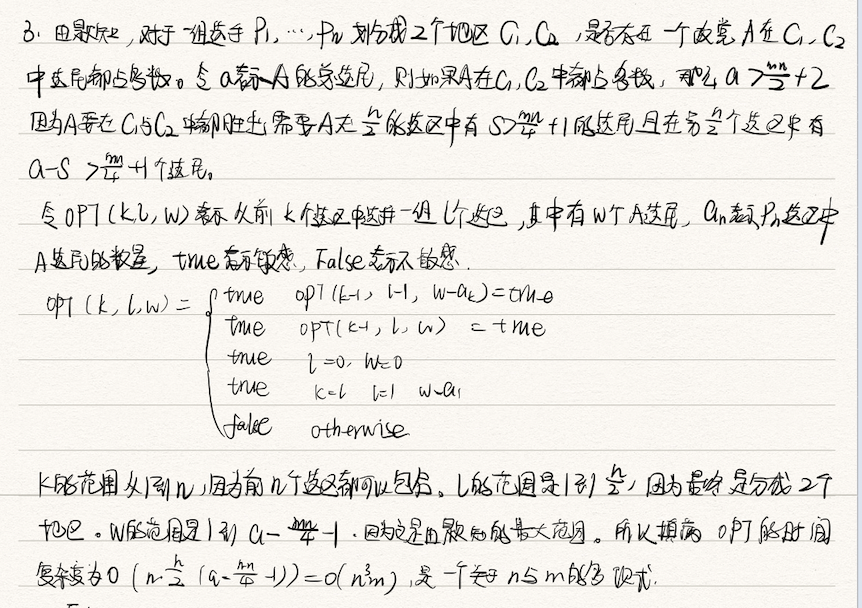 3. 由题知, 对于一组选于 P₁, ⋯, Pn 划分成2个地区 C₁, C₂, 是否存在一个政党 A 在 C₁, C₂
中选民都占多数。令 a 表示 A 的总选民, 则如果 A 在 C₁, C₂ 中都占多数, 那么 a > mn/2 + 2
因为 A 要在 C₁ 与 C₂ 中都胜出, 需要 A 在 n/2 的选区中有 S > mn/4 + 1 的选民且在另 n/2 个选区中有
a-S > mn/4 +1 个选民。
令 OPT (k, l, w) 表示从前 k 个选区中选择一组 l 个选区, 其中有 w 个 A 选民, an 表示 Pn 选区中
A 选民的数量, true 表示敏感, False 表示不敏感.
OPT (k, l, w) = { true OPT (k-1, l-1, w-ak) = true
true OPT (k-1, l, w) = true
true l=0, w=0
true k=l l=1 w-a₁
false otherwise
k 的范围从1到n, 因为前 n 个选区都可以包含。l 的范围是1到 n/2, 因为最终是分成2个
地区。w 的范围是1到 a - mn/4 - 1. 因为这是由题知的最大范围。所以填满 OPT 的时间
复杂度为 O (n · n/2 (a - mn/4 - 1)) = O(n³m), 是一个关于 n 与 m 的多项式.